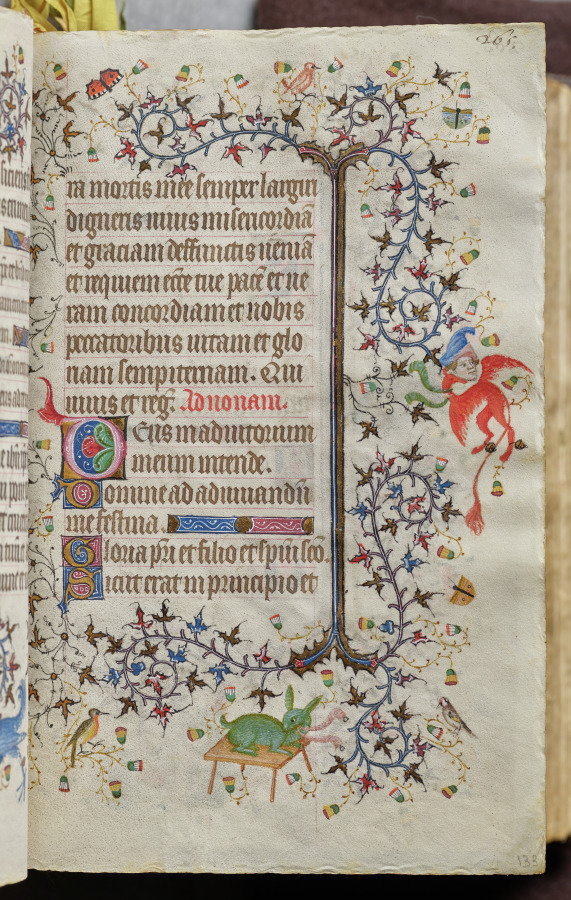 261.
ra mortis mee semper largiri
digneris viuis misericordiā
et graciam deffunctis ueniā
et requiem ecc̄e tue pacē et ue
ram concordiam et nobis
peccatoribus uitam et glo
riam sempiternam. Qui
viuis et reḡ. Ad nonam.
Deus in adiutorium
meum intende.
Domine ad adiuuandū
me festina.
Gloria pr̄i et filio et spīui sc̄o.
Sicut erat in principio et
133